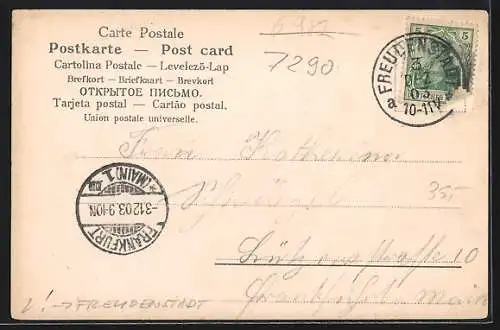 Carte Postale
Postkarte — Post card
Cartolina Postale — Levelező-Lap
Brefkort — Briefkaart — Brevkort
ОТКРЫТОЕ ПИСЬМО.
Tarjeta postal — Cartão postal.
Union postale universelle.
7290
5 5
FREUDENSTADT
3
DEZ
03
a 10-11V
Frau Katharina
35
FRANKFURT (MAIN) 1
-3.12.03.9-10N.
Lützowstraße 10
Frankfurt Main
! → FREUDENSTADT